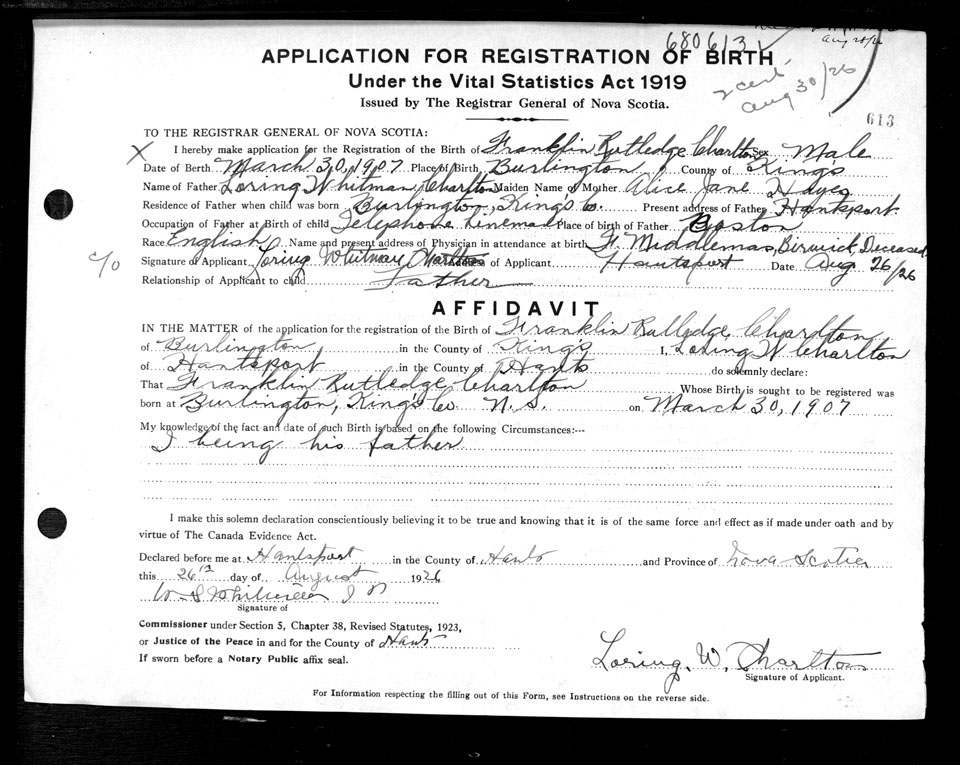 680613
Aug 28/26
APPLICATION FOR REGISTRATION OF BIRTH
Under the Vital Statistics Act 1919
Issued by The Registrar General of Nova Scotia.
2 cert.
Aug 30/26
613
TO THE REGISTRAR GENERAL OF NOVA SCOTIA:
X I hereby make application for the Registration of the Birth of Franklin Rutledge Charlton Sex Male
Date of Berth March 30, 1907 Place of Birth, Burlington County of King's
Name of Father Loring Whitman Charlton Maiden Name of Mother Alice Jane Hayes
Residence of Father when child was born Burlington, Kings Co. Present address of Father Hantsport
Occupation of Father at Birth of child Telephone Lineman Place of birth of Father Boston
Race English Name and present address of Physician in attendance at birth F. Middlemas, Birwick, Deceased
c/o Signature of Applicant Loring Whitman Charlton Address of Applicant Hantsport Date Aug 26/26
Relationship of Applicant to child Father
AFFIDAVIT
IN THE MATTER of the application for the registration of the Birth of Franklin Rutledge Charlton
of Burlington, in the County of King's I, Loring W Charlton
of Hantsport in the County of Hants do solemnly declare:
That Franklin Rutledge Charlton Whose Birth is sought to be registered was
born at Burlington, King's Co N.S. on March 30, 1907
My knowledge of the fact and date of such Birth is based on the following Circumstances:—
I being his father
I make this solemn declaration conscientiously believing it to be true and knowing that it is of the same force and effect as if made under oath and by
virtue of The Canada Evidence Act.
Declared before me at Hantsport in the County of Hants and Province of Nova Scotia
this 26th day of August 1926
W. S. J P
Signature of
Commissioner under Section 5, Chapter 38, Revised Statutes, 1923,
or Justice of the Peace in and for the County of Hants
If sworn before a Notary Public affix seal.
Loring. W. Charlton
Signature of Applicant.
For Information respecting the filling out of this Form, see Instructions on the reverse side.